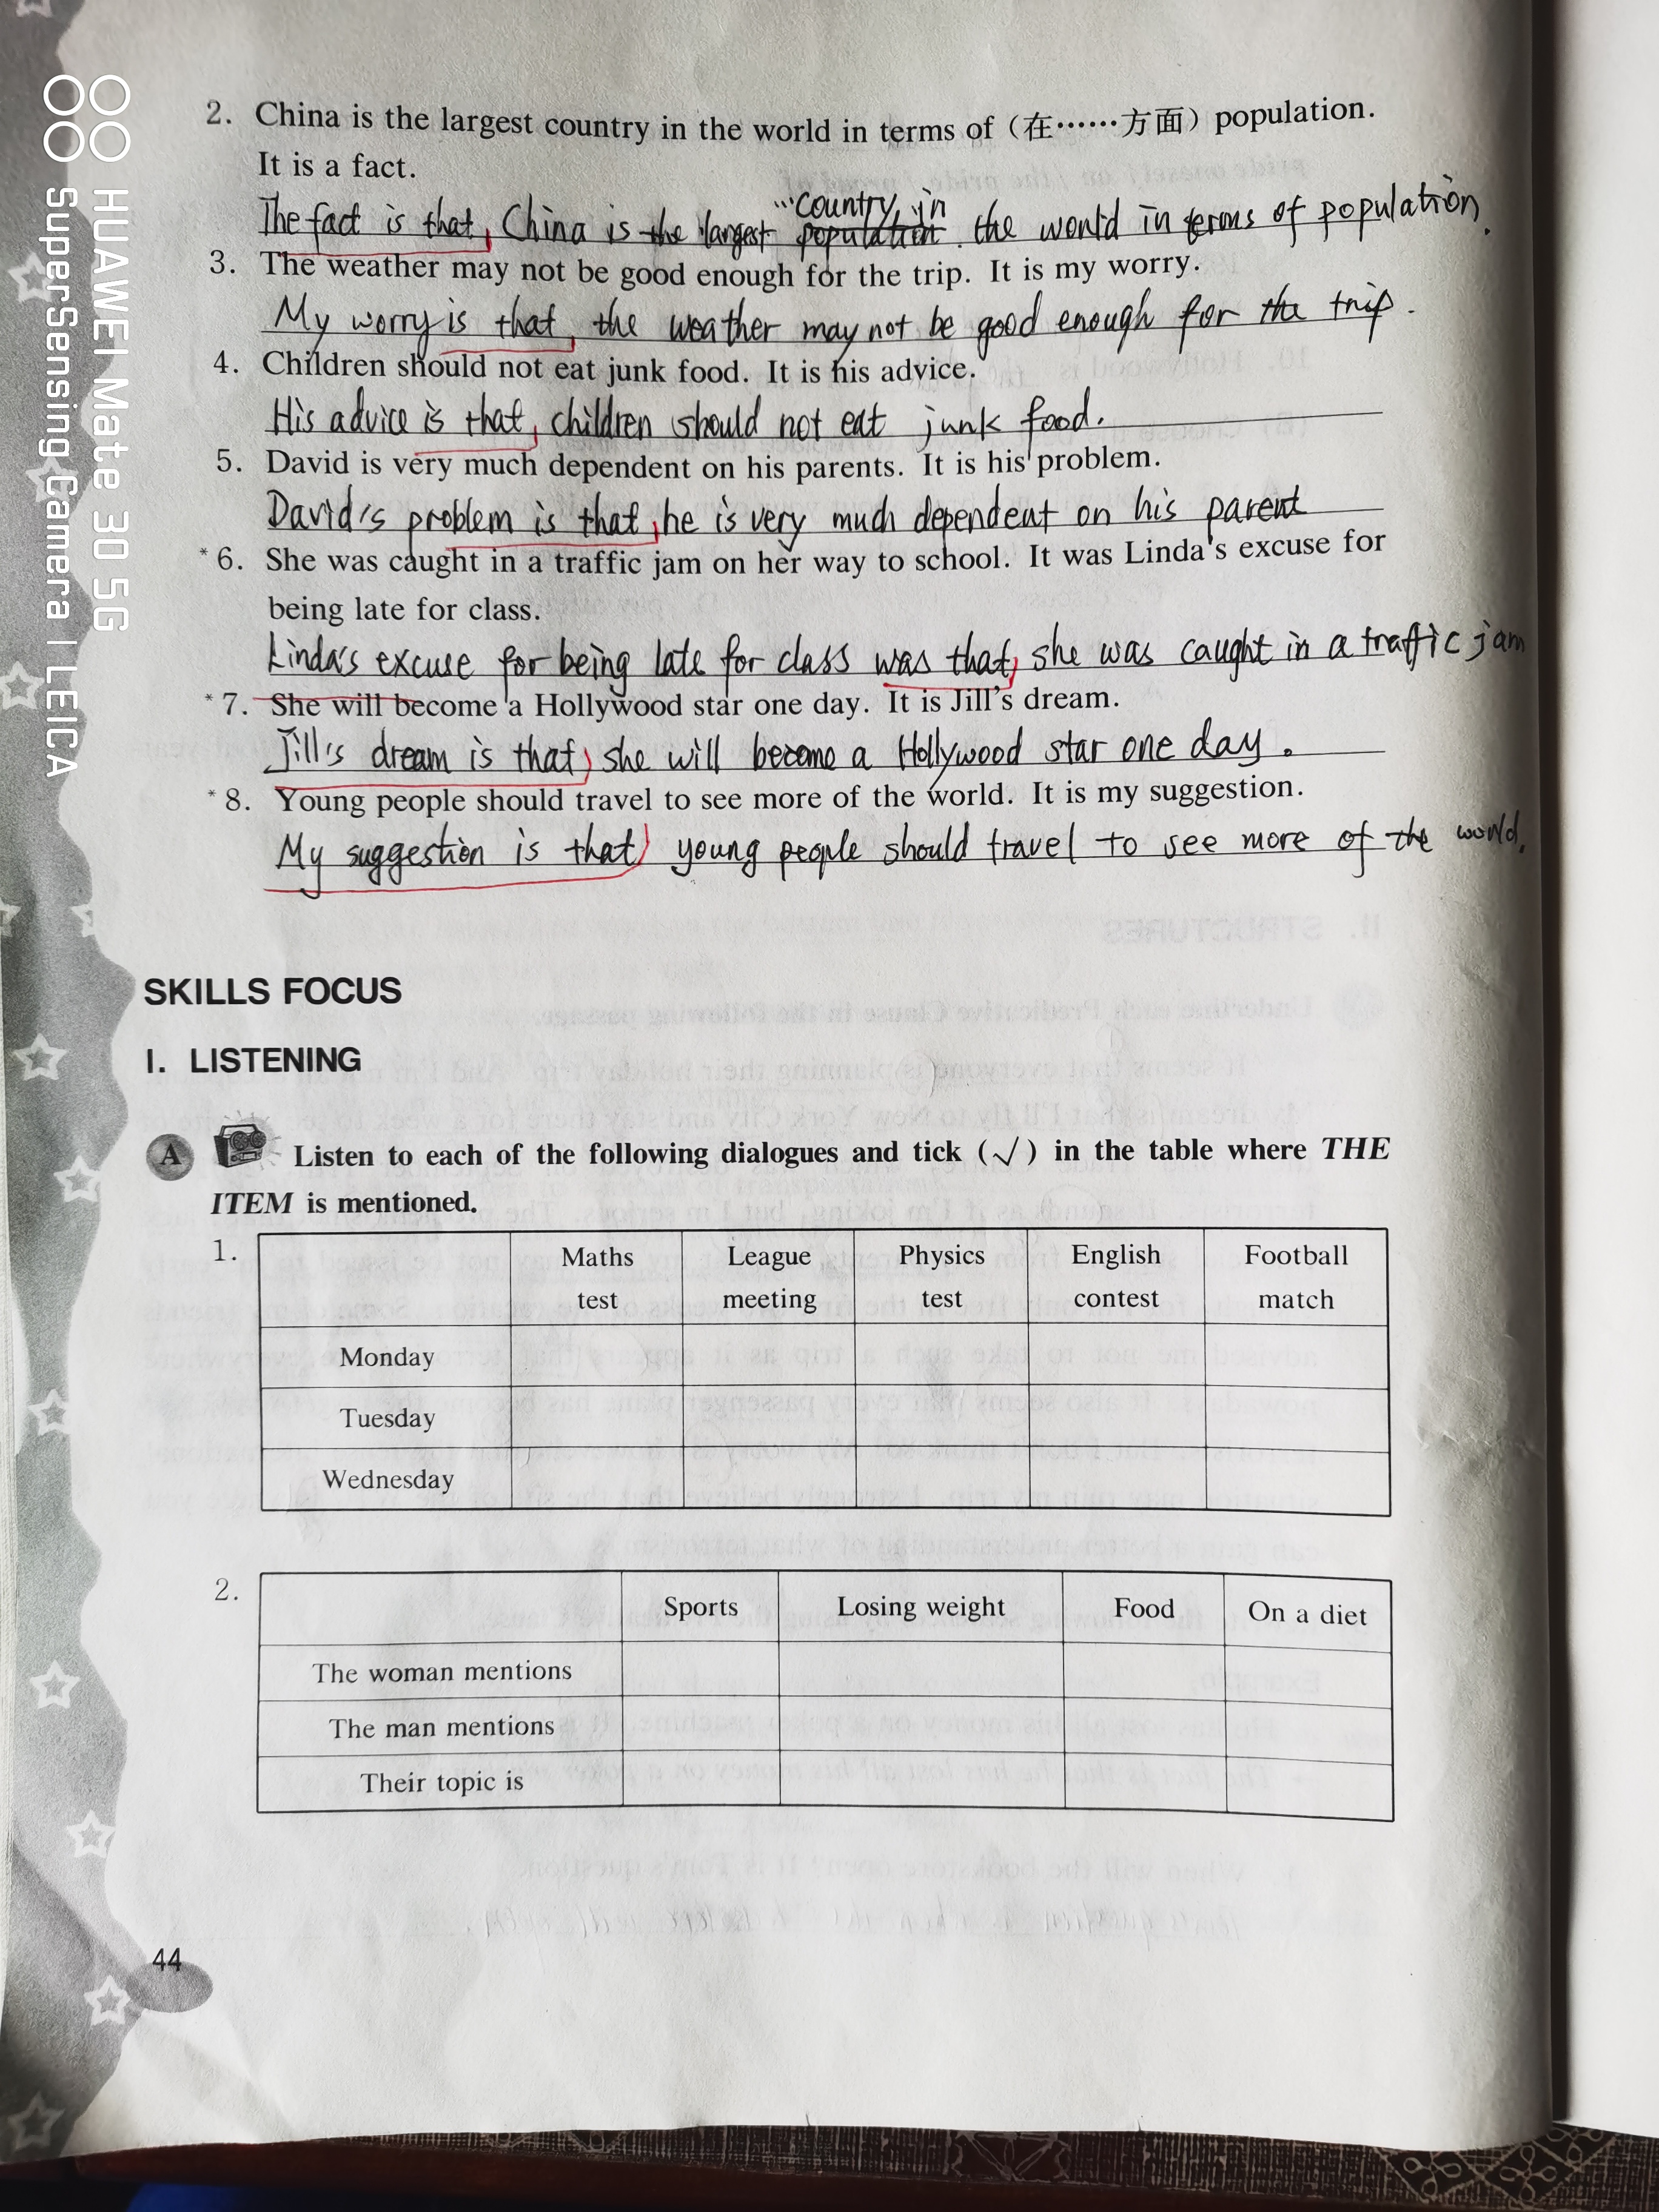 2. China is the largest country in the world in terms of (在……方面) population.
It is a fact.
The fact is that, China is the largest country in the world in terms of population.
3. The weather may not be good enough for the trip. It is my worry.
My worry is that, the weather may not be good enough for the trip.
4. Children should not eat junk food. It is his advice.
His advice is that, children should not eat junk food.
5. David is very much dependent on his parents. It is his problem.
David's problem is that, he is very much dependent on his parent
*6. She was caught in a traffic jam on her way to school. It was Linda's excuse for
being late for class.
Linda's excuse for being late for class was that, she was caught in a traffic jam
*7. She will become a Hollywood star one day. It is Jill's dream.
Jill's dream is that, she will become a Hollywood star one day.
*8. Young people should travel to see more of the world. It is my suggestion.
My suggestion is that, young people should travel to see more of the world.
SKILLS FOCUS
I. LISTENING
A Listen to each of the following dialogues and tick (√) in the table where THE
ITEM is mentioned.
1. Maths test League meeting Physics test English contest Football match
Monday
Tuesday
Wednesday
2. Sports Losing weight Food On a diet
The woman mentions
The man mentions
Their topic is
44
HUAWEI Mate 30 5G
SuperSensing Camera | LEICA